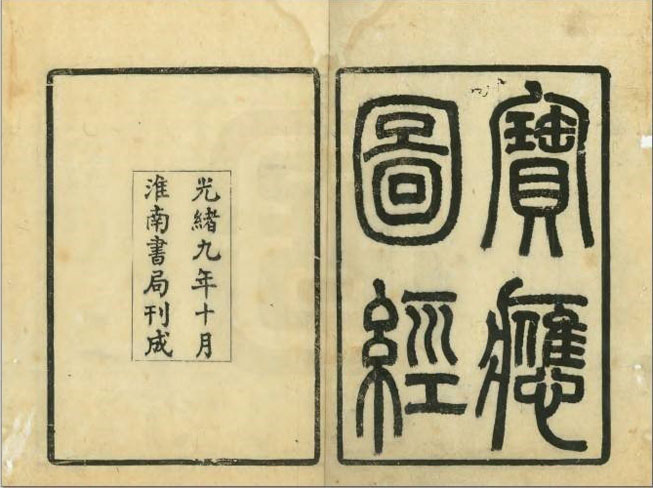 寶應
圖經
光緒九年十月
淮南書局刊成